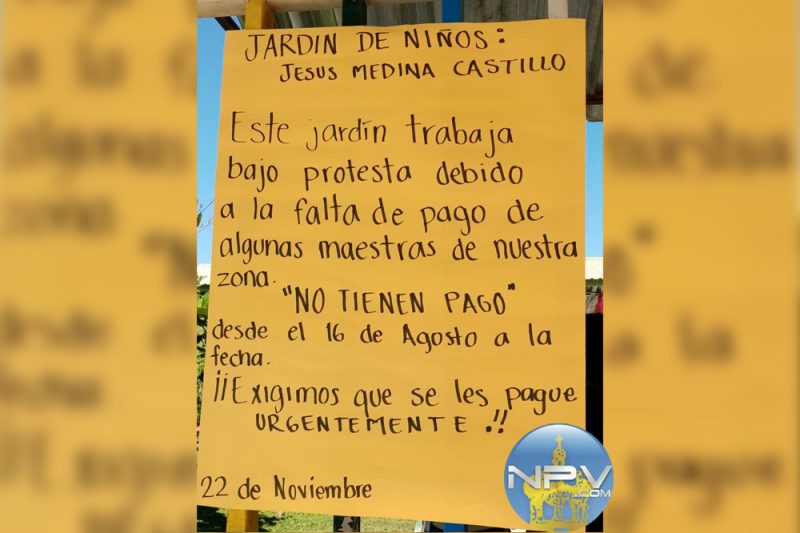 JARDIN DE NIÑOS:
JESUS MEDINA CASTILLO
Este jardín trabaja
bajo protesta debido
a la falta de pago de
algunas maestras de nuestra
zona.
"NO TIENEN PAGO"
desde el 16 de Agosto a la
fecha.
¡¡Exigimos que se les pague
URGENTEMENTE.!!
22 de Noviembre
NPV
.COM